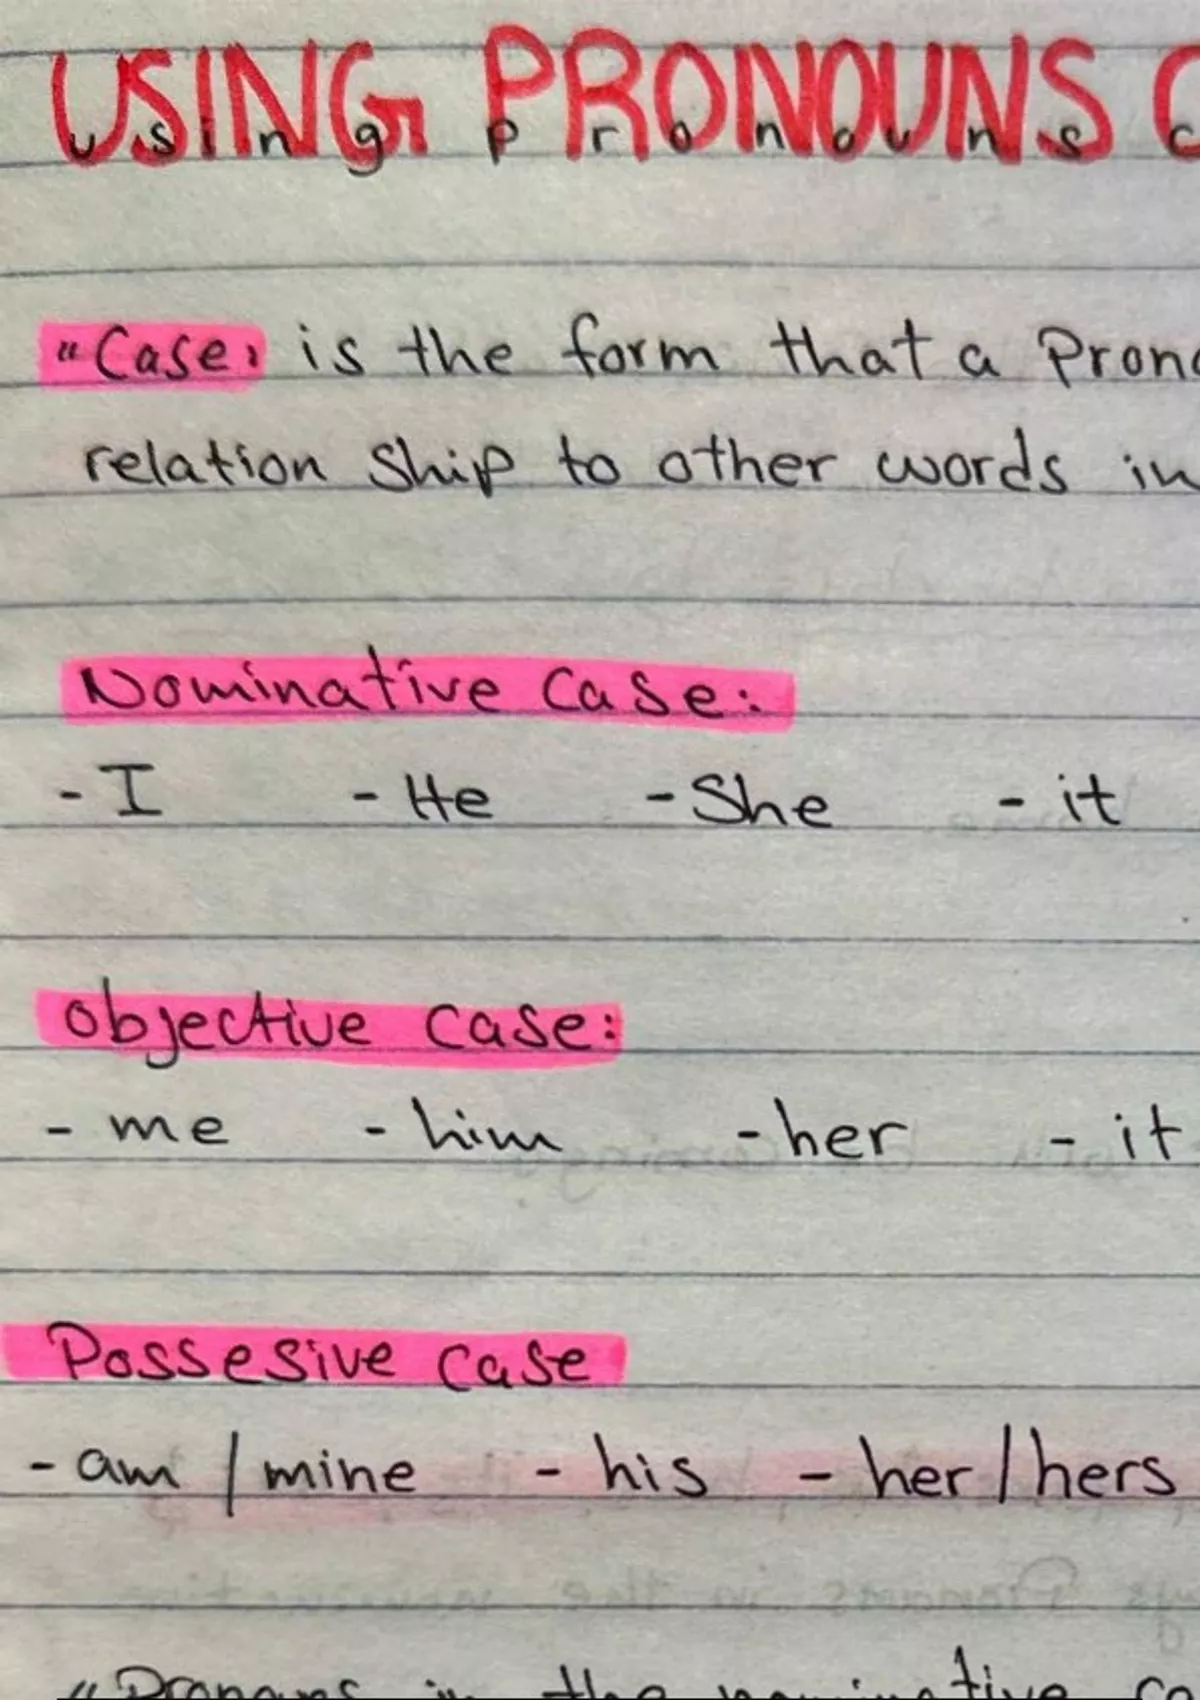 USING PRONOUNS C
using pronouns c
"Case, is the form that a Prono
relation Ship to other words in
Nominative Case:
- I - He - She - it
objective case:
- me - him - her - it
Possesive case
- am / mine - his - her / hers
"Pronouns in the nominative ca